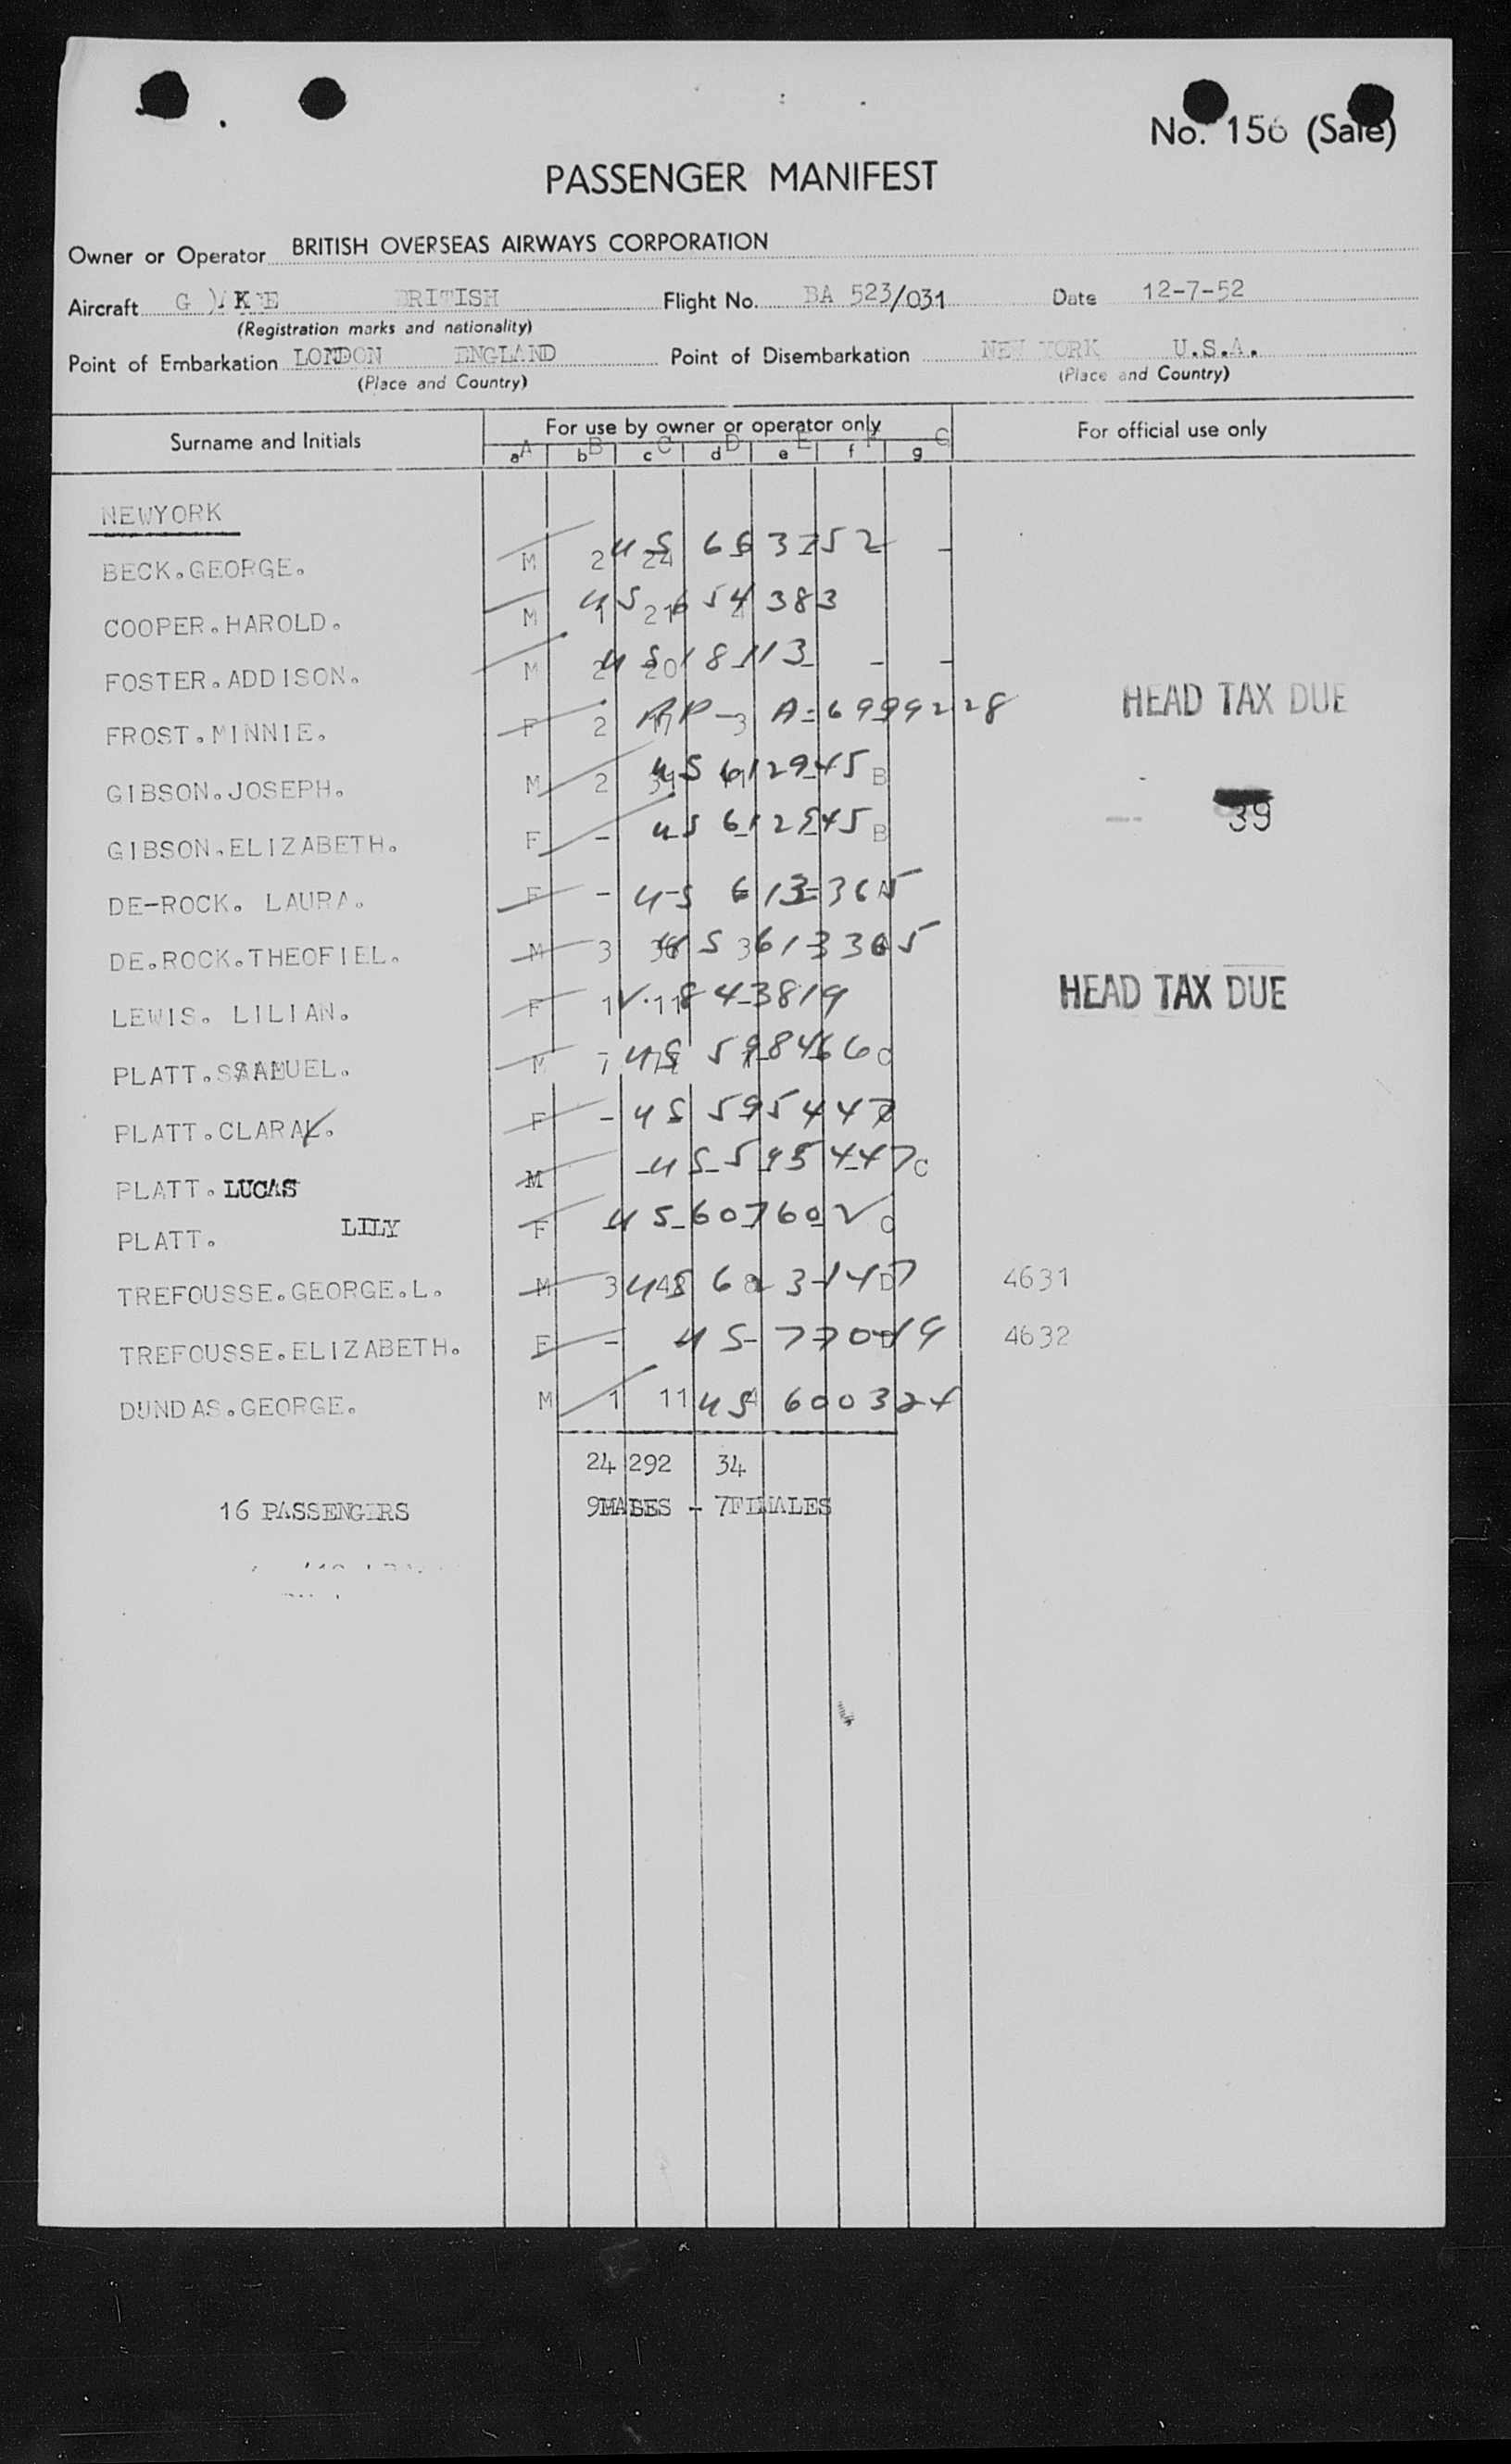 No. 156 (Sale)
PASSENGER MANIFEST
Owner or Operator BRITISH OVERSEAS AIRWAYS CORPORATION
Aircraft G BRITISH Flight No. BA 523/031 Date 12-7-52
(Registration marks and nationality)
Point of Embarkation LONDON ENGLAND Point of Disembarkation NEW YORK U.S.A.
(Place and Country) (Place and Country)
Surname and Initials For use by owner or operator only For official use only
a A b B c C d D e E f F g G
NEWYORK
BECK.GEORGE. M 2 24 US 52 -
COOPER.HAROLD. M 1 21 US 654383
FOSTER.ADDISON. M 2 20 US 18113 - -
FROST.MINNIE. F 2 RP - 3 A-6999228 HEAD TAX DUE
GIBSON.JOSEPH. M 2 US 612945 B
39
GIBSON.ELIZABETH. F - US 612945 B
DE-ROCK. LAURA. F - US 613365
DE.ROCK.THEOFIEL. M 3 US 613365
LEWIS. LILIAN. F 1 11 V. 843819 HEAD TAX DUE
PLATT.SAMUEL. M 7 US 598466 C
PLATT.CLARA. F - US 595447
PLATT. LUCAS M - US 595447 C
PLATT. LILY F US 607602 C
TREFOUSSE.GEORGE.L. M 3 48 US 623147 D 4631
TREFOUSSE.ELIZABETH. F - US 770019 4632
DUNDAS.GEORGE. M 1 11 US 600324
24 292 34
16 PASSENGERS 9MALES - 7FEMALES